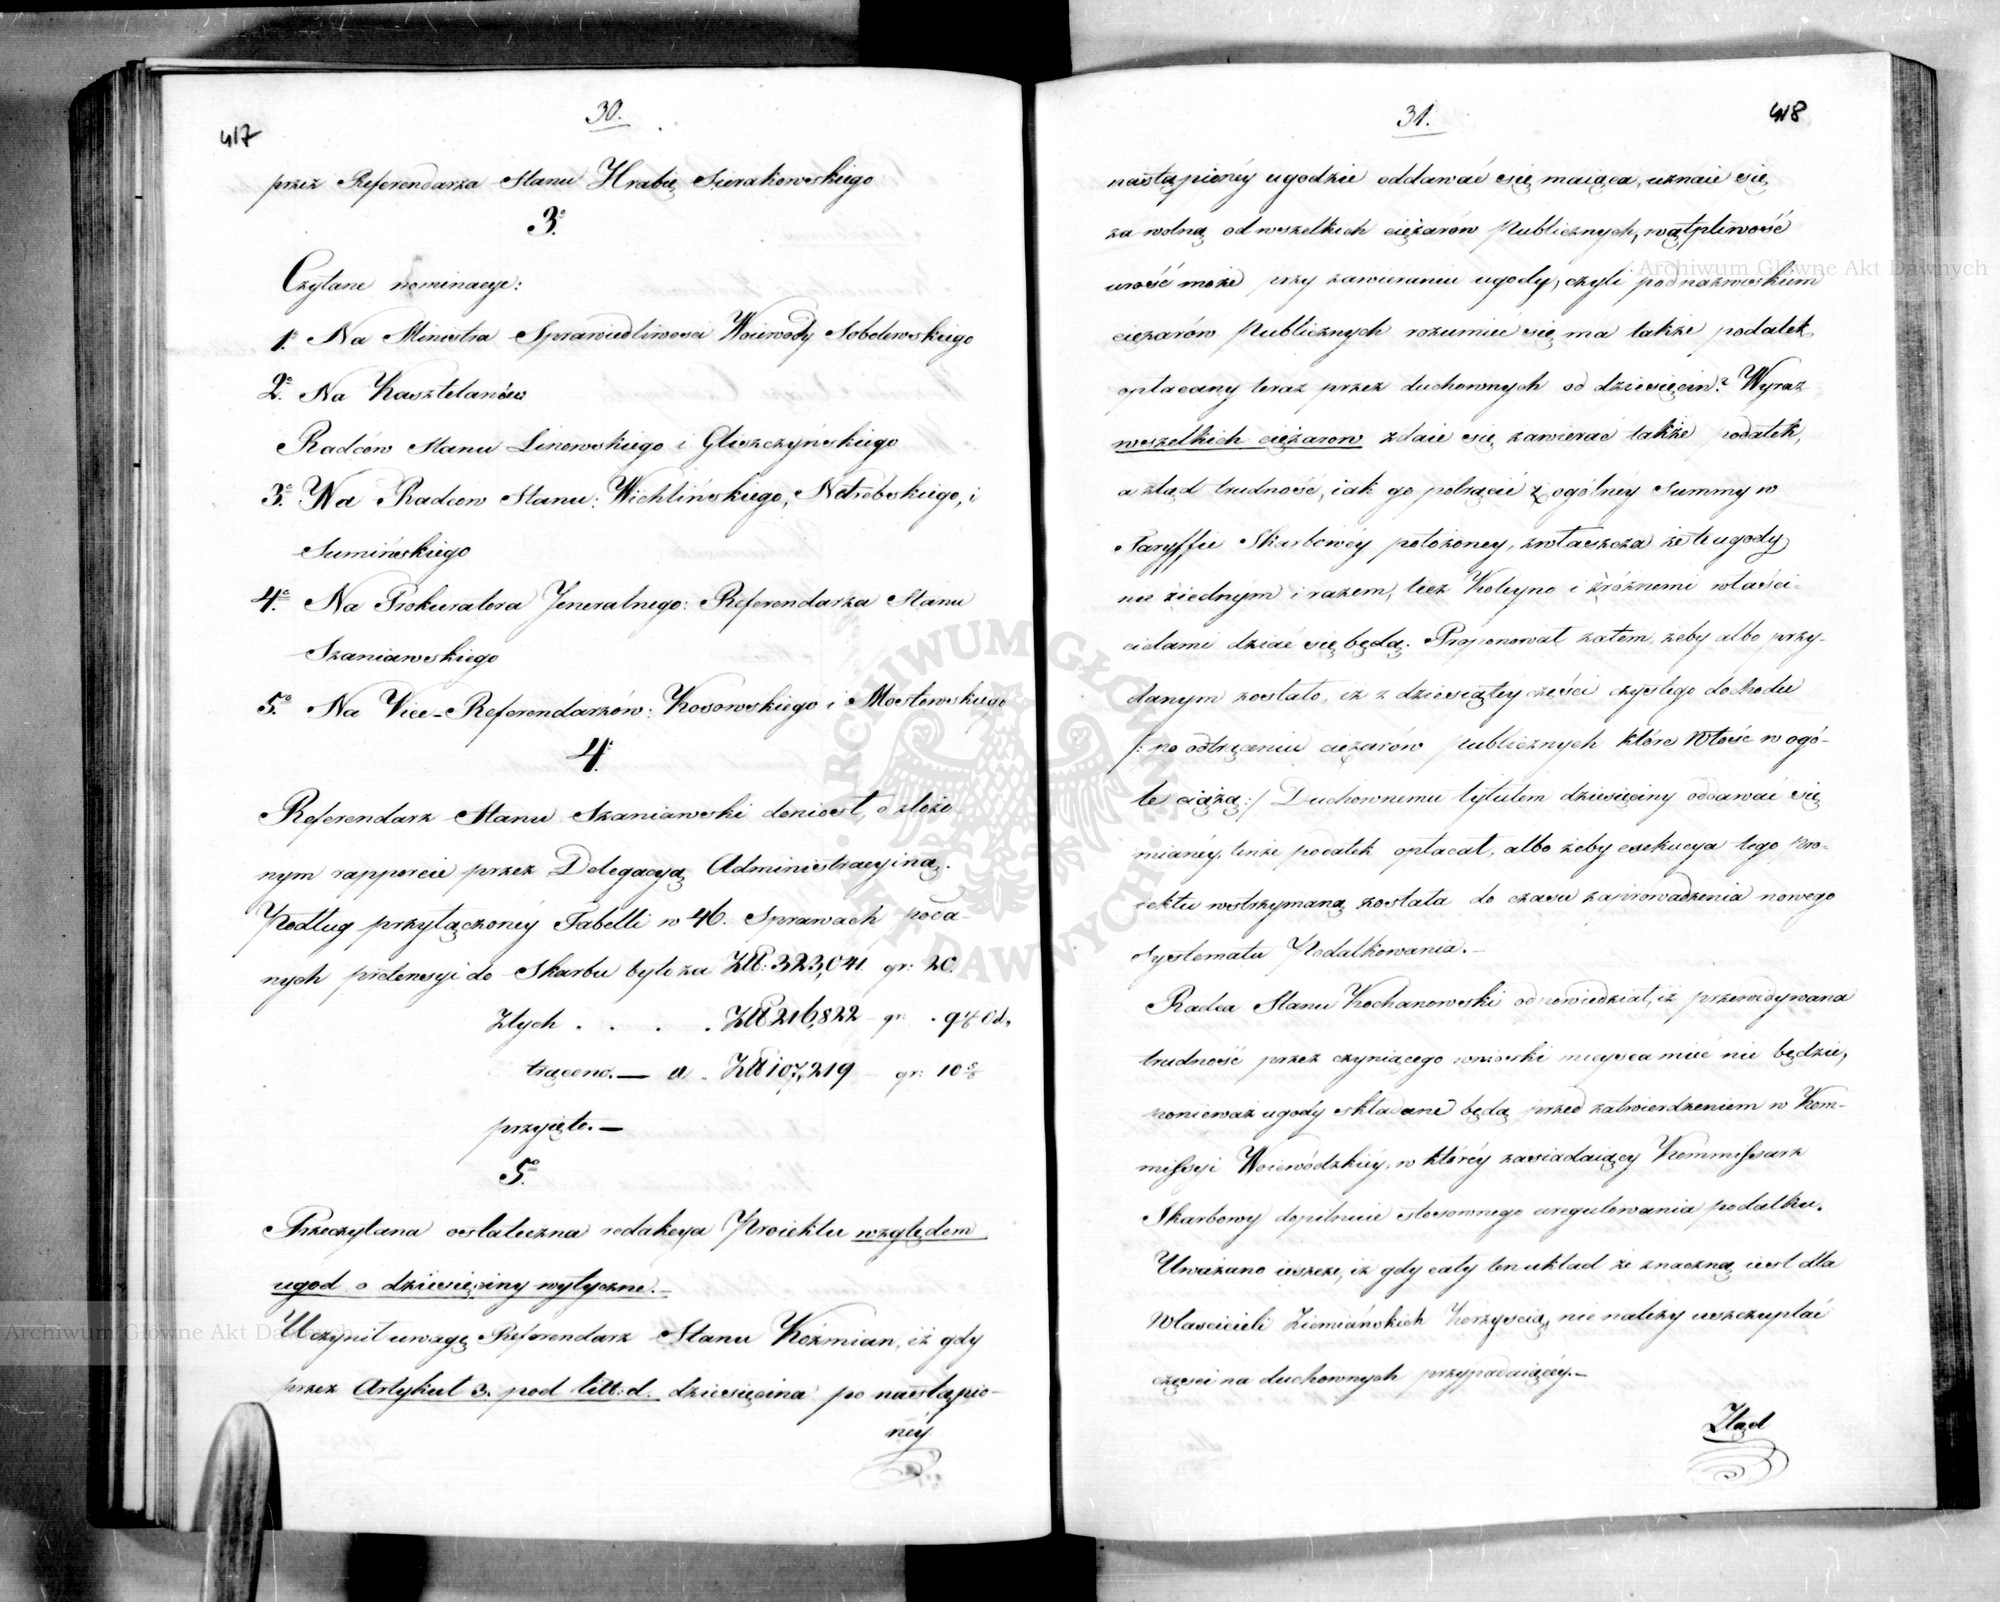 417
30.
przez Referendarza Stanu Hrabię Sierakowskiego
3.
Czytane nominacye:
1. Na Ministra Sprawiedliwości Woiewody Sobolewskiego
2. Na Kasztelanów
Radców Stanu Linowskiego i Gliszczyńskiego
3. Na Radców Stanu: Wichlińskiego, Nakwaskiego, i
Sumińskiego
4. Na Prokuratora Jeneralnego: Referendarza Stanu
Szaniawskiego
5. Na Vice-Referendarzów: Kosowskiego i Mostowskiego
4.
Referendarz Stanu Szaniawski doniosł, o złożo-
nym rapporcie przez Delegacyą Administracyiną.
Podług przyłączonéy Tabelli w 46. Sprawach poda-
nych pretensyi do Skarbu było za Złł: 323,041 gr: 20.
Złych . . . . Złł 216,822 - gr: . 9 4/6 Od,
trącono. — a . Złł 107,219 - gr: 10 2/6
przyięto. —
5.
Przeczytana ostateczna redakcya Proiektu względem
ugod o dziesięciny wytyczne. —
Uczynił uwagę Referendarz Stanu Koźmian, iż gdy
przez Artykuł 3. pod litt: d. dziesięcina po nastąpio-
néy
31.
418
nastąpionéy ugodzie oddawać się maiąca, uznaie się
za wolną od wszelkich ciężarów Publicznych, wątpliwość
urość może przy zawieraniu ugody, czyli pod nazwiskiem
ciężarów Publicznych rozumieć się ma także podatek
opłacany teraz przez duchownych od dziesięcin? Wyraz
wszelkich ciężarow zdaie się zawierać także podatek,
a ztąd trudność, iak go potrącić z ogólnéy Summy w
Taryffie Skarbowéy położonéy, zwłaszcza że te ugody
nie z iednym i razem, lecz Koleyno i z różnemi właści-
cielami dziać się będą. Proponował zatem, żeby albo przy-
danym zostało, iż z dziesiątéy części czystego dochodu
/: po odtrąceniu ciężarów publicznych które Włość w ogó-
le ciążą :/ Duchownemu tytułem dziesięciny oddawać się
mianéy, tenże podatek opłacał, albo żeby exekucya tego Pro-
iektu wstrzymaną została do czasu zaprowadzenia nowego
Systematu Podatkowania. —
Radca Stanu Kochanowski odpowiedział, iż przewidywana
trudność przez czyniącego wnioski mieysca mieć nie będzie,
ponieważ ugody składane będą przed zatwierdzeniem w Kom-
missyi Woiewódzkiéy, w któréy zasiadaiący Kommissarz
Skarbowy dopilnuie stosownego uregulowania podatku.
Uważano ieszcze, iż gdy cały ten układ ze znaczną iest dla
Właścicieli Ziemiańskich Korzyścią, nie należy uszczuplać
części na duchownych przypadaiącéy. —
Ztąd
Archiwum Główne Akt Dawnych
Archiwum Główne Akt Dawnych
ARCHIWUM GŁÓWNE AKT DAWNYCH